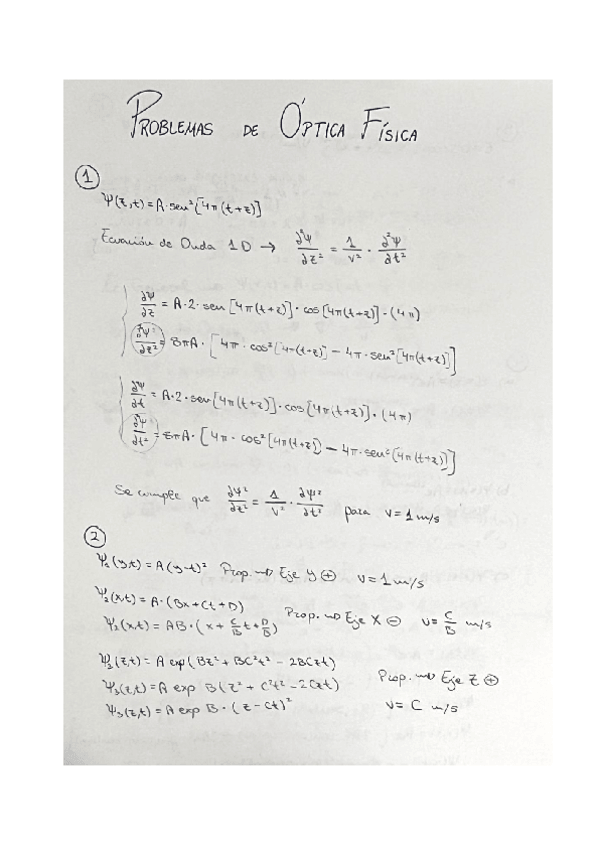 PROBLEMAS DE ÓPTICA FÍSICA
1
Ψ(z,t) = A·sen²[4π(t+z)]
Ecuación de Onda 1D → ∂²Ψ/∂z² = 1/v² · ∂²Ψ/∂t²
∂Ψ/∂z = A·2·sen[4π(t+z)]·cos[4π(t+z)]·(4π)
∂²Ψ/∂z² = 8πA·[4π·cos²[4π(t+z)] − 4π·sen²[4π(t+z)]]
∂Ψ/∂t = A·2·sen[4π(t+z)]·cos[4π(t+z)]·(4π)
∂²Ψ/∂t² = 8πA·[4π·cos²[4π(t+z)] − 4π·sen²[4π(t+z)]]
Se cumple que ∂Ψ²/∂z² = 1/v² · ∂Ψ²/∂t² para v = 1 m/s
2
Ψ₁(y,t) = A(y−t)² Prop. ⇒ Eje y ⊕ v = 1 m/s
Ψ₂(x,t) = A·(Bx+Ct+D)
Ψ₂(x,t) = AB·(x + C/B t + D/B) Prop. ⇒ Eje X ⊖ v = C/B m/s
Ψ₃(z,t) = A exp(Bz² + BC²t² − 2BCzt)
Ψ₃(z,t) = A exp B(z² + C²t² − 2Czt) Prop. ⇒ Eje Z ⊕
Ψ₃(z,t) = A exp B·(z − Ct)² v = C m/s